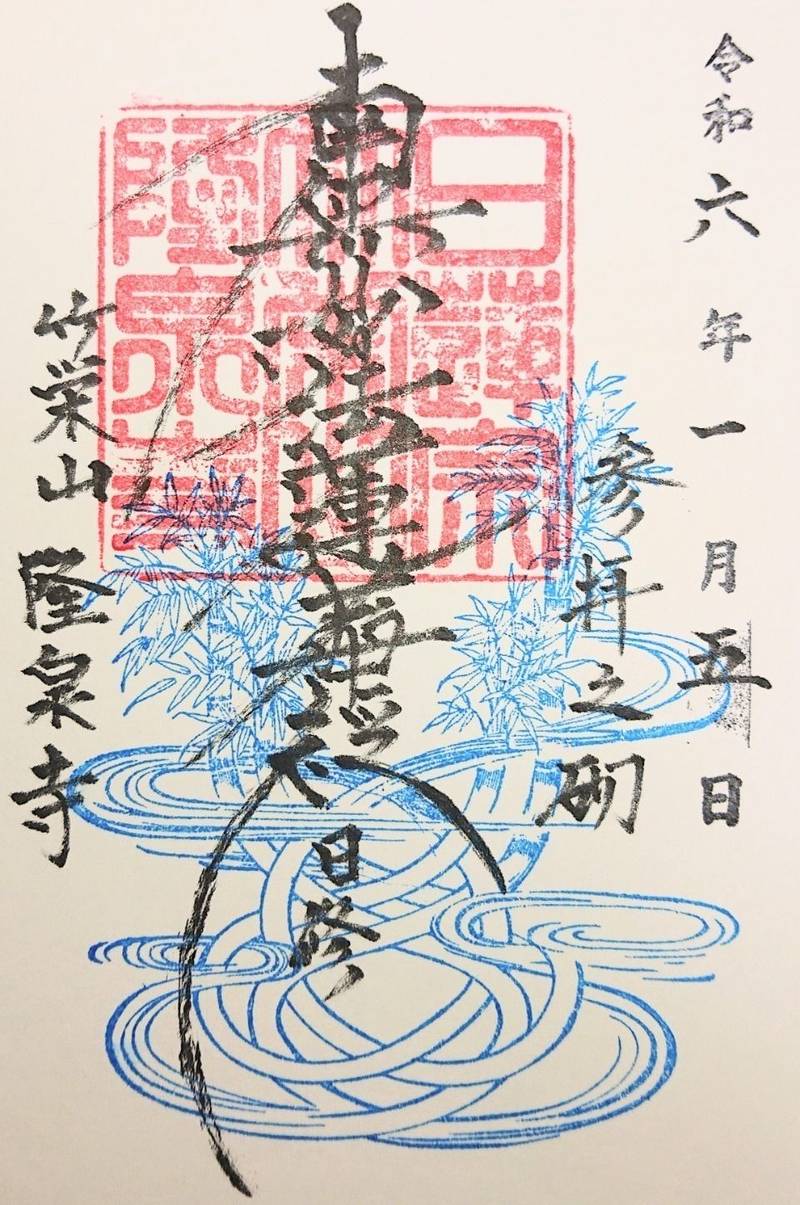 令和六年一月五日
參拝之砌
南無妙法蓮華経
竹栄山 隆泉寺
日蓮宗
隆泉寺